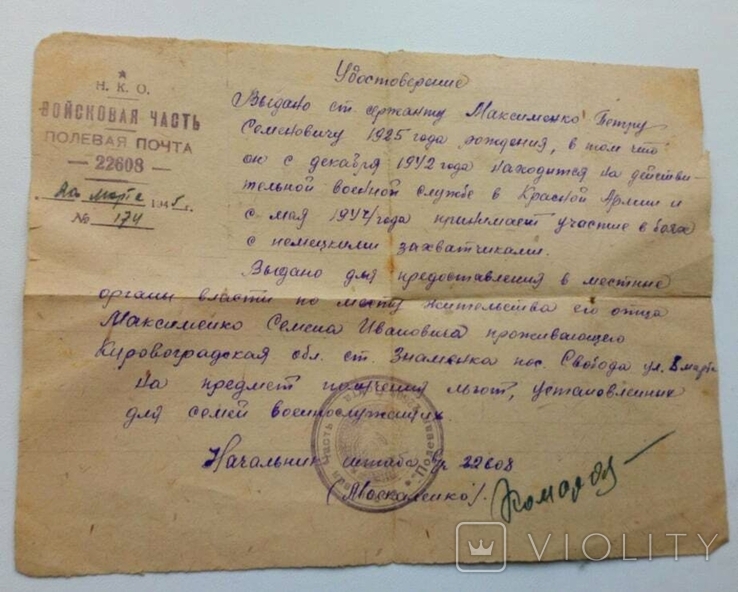 Удостоверение
Н. К. О.
ВОЙСКОВАЯ ЧАСТЬ
ПОЛЕВАЯ ПОЧТА
— 22608 —
марта 1945 г.
№ 174
Выдано ст. сержанту Максименко Петру
Семеновичу 1925 года рождения, в том что
он с декабря 1942 года находится на действи-
тельной военной службе в Красной Армии и
с мая 1944 года принимает участие в боях
с немецкими захватчиками.
Выдано для предоставления в местные
органы власти по месту жительства его отца
Максименко Семена Ивановича проживающего
Кировоградская обл. ст. Знаменка пос. Свобода ул. 8 марта
на предмет получения льгот, установленных
для семей военнослужащих.
Начальник штаба 22608
(Москаленко).
VIOLITY